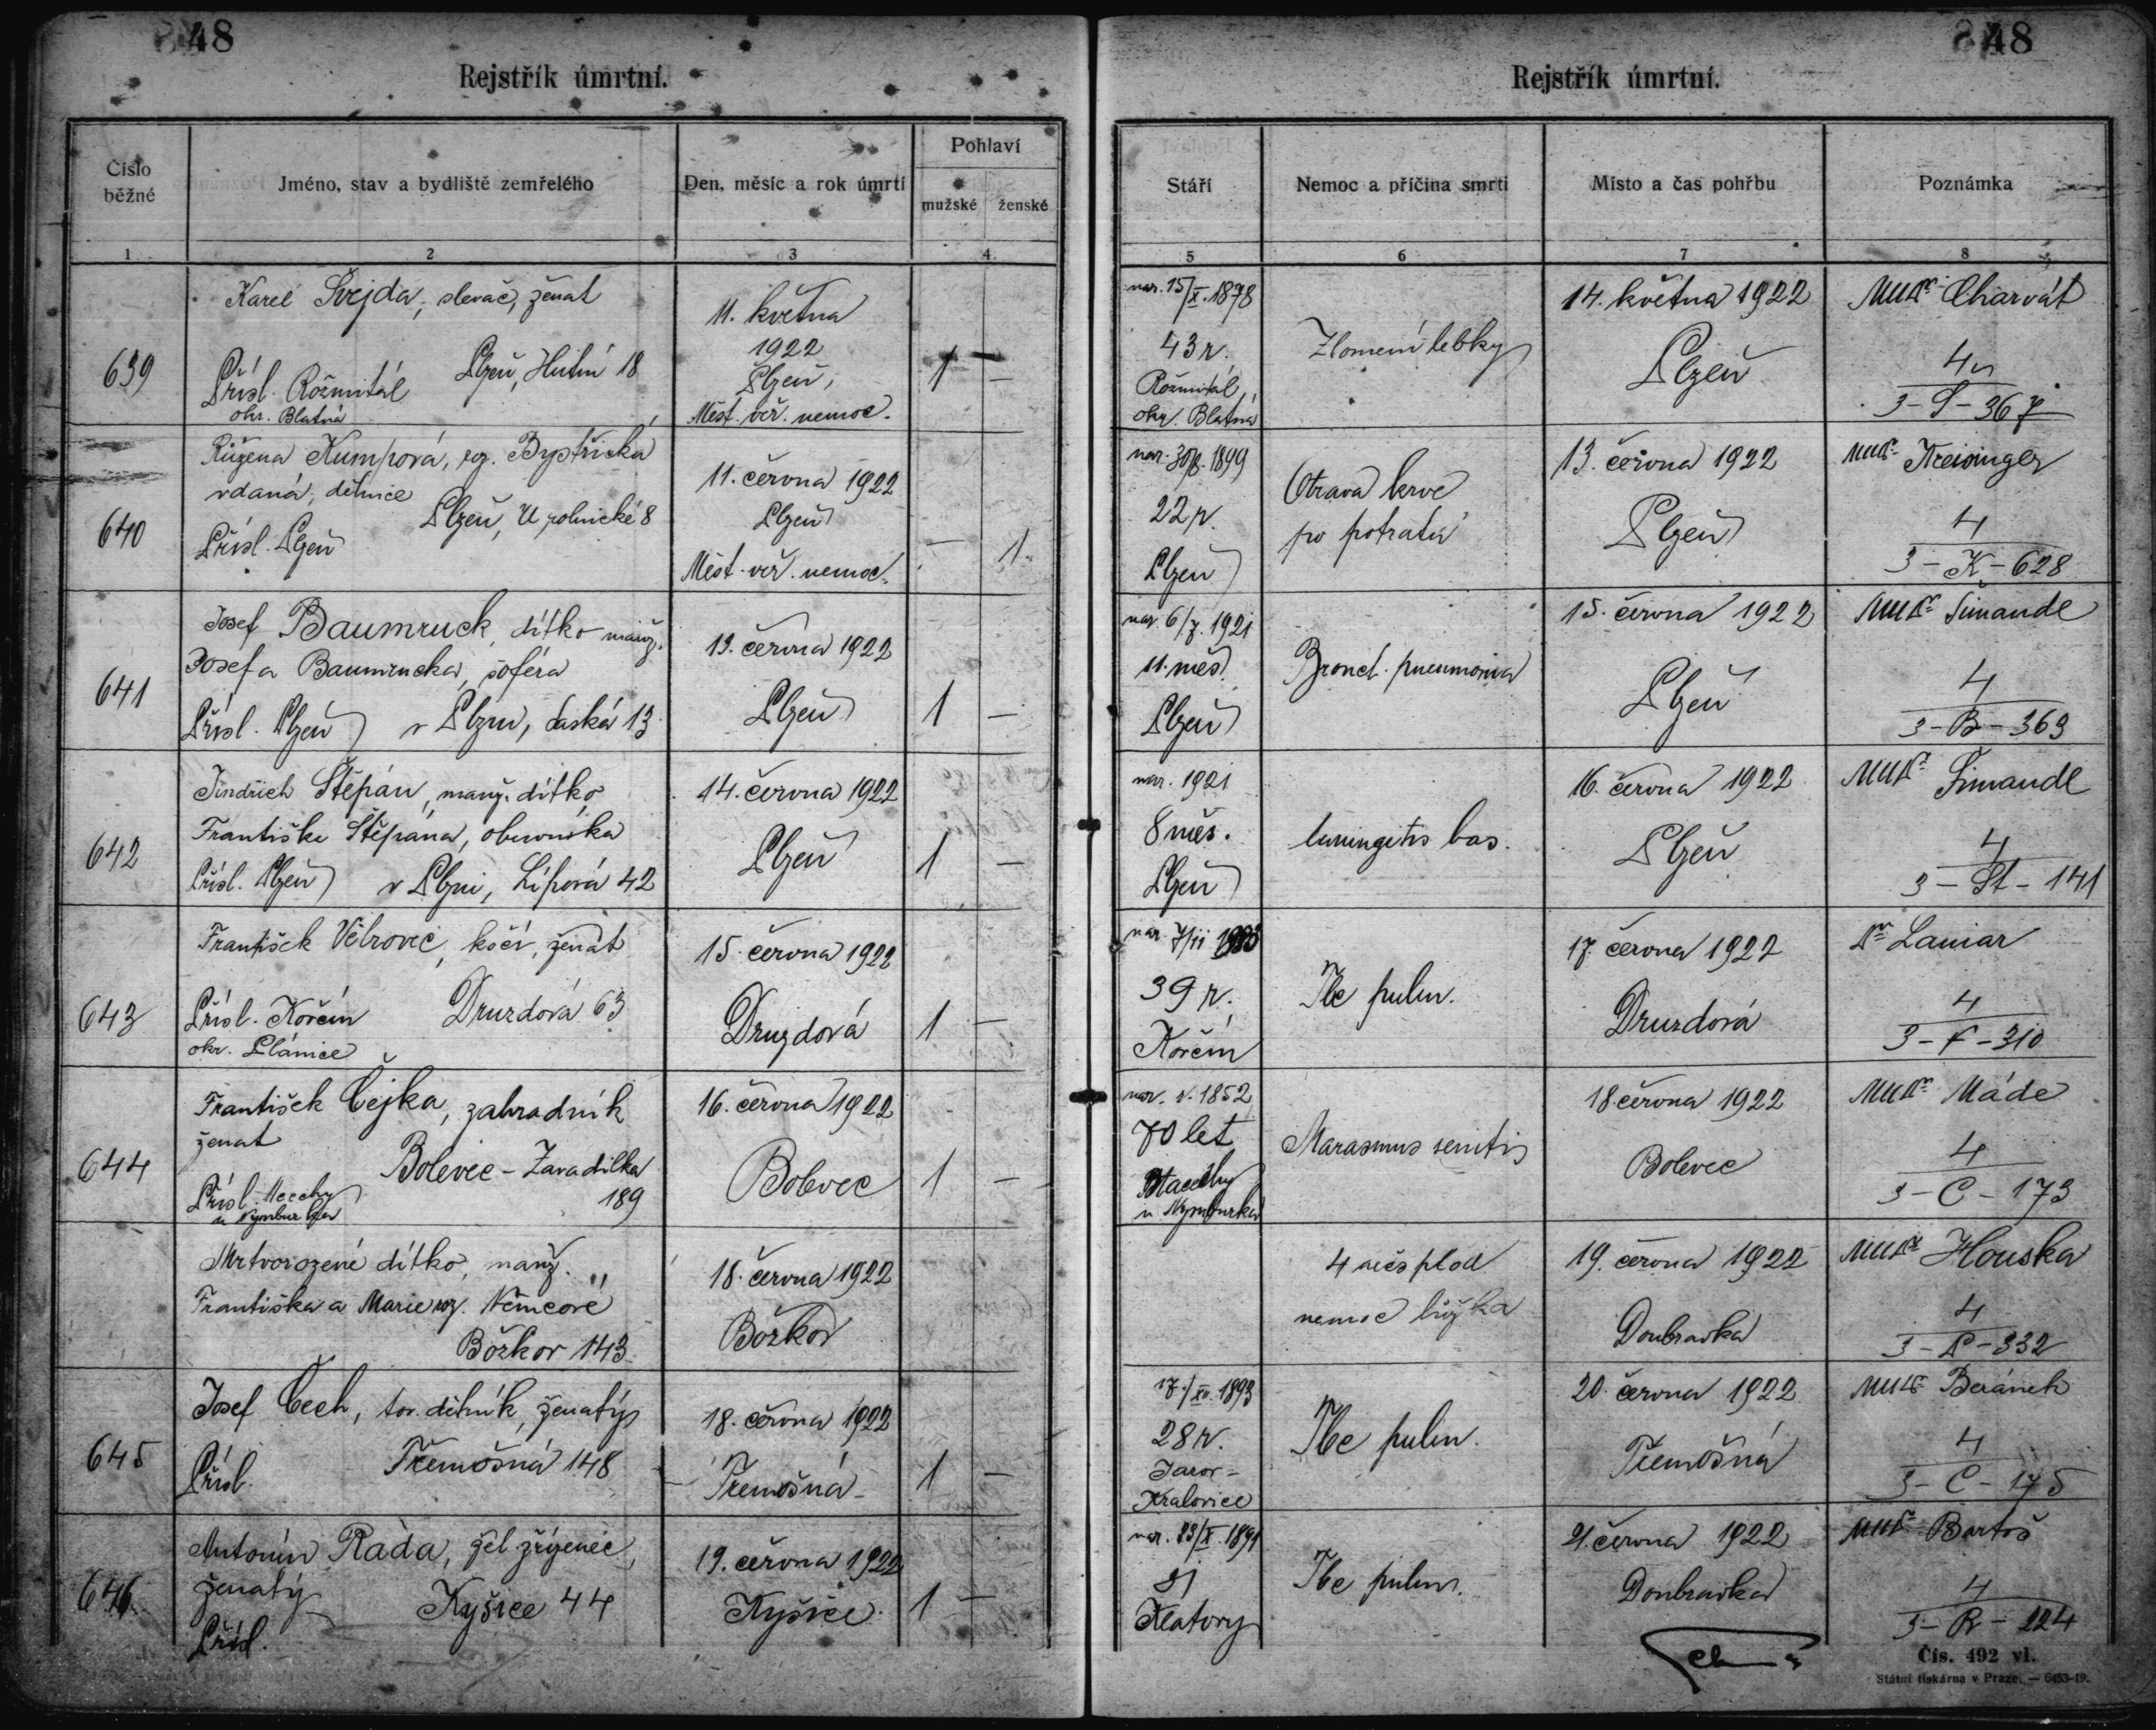 48
Rejstřík úmrtní.
Číslo běžné
Jméno, stav a bydliště zemřelého
Den, měsíc a rok úmrtí
Pohlaví
mužské
ženské
1
2
3
4
639
Karel Švejda, slevač, ženat
Plzeň, Hutní 18
Přísl. Rožmitál
okr. Blatná
11. května
1922
Plzeň,
Měst. veř. nemoc.
1
—
640
Růžena Kumpová, roz. Bystřická
vdaná, dělnice
Plzeň, U polnické 8
Přísl. Plzeň
11. června 1922
Plzeň
Měst. veř. nemoc.
—
1
641
Josef Baumruck, dítko manž.
Josefa Baumrucka, šoféra
Přísl. Plzeň v Plzni, Saská 13
13. června 1922
Plzeň
1
—
642
Jindřich Štěpán, manž. dítko
Františka Štěpána, obuvníka
Přísl. Plzeň v Plzni, Lipová 42
14. června 1922
Plzeň
1
—
643
František Větrovec, kočí, ženat
Druzdová 63
Přísl. Kovčín
okr. Plánice
15. června 1922
Druzdová
1
—
644
František Čejka, zahradník
ženat
Bolevec - Zavadilka
189
Přísl.
u Nymburka
16. června 1922
Bolevec
1
—
Mrtvorozené dítko, manž.
Františka a Marie roz. Němcové
Božkov 143
18. června 1922
Božkov
645
Josef Čech, tov. dělník, ženatý
Třemošná 148
Přísl.
18. června 1922
Třemošná
1
—
646
Antonín Rada, žel. zřízenec,
ženatý
Kyšice 44
Přísl.
19. června 1922
Kyšice
1
—
48
Rejstřík úmrtní.
Stáří
Nemoc a příčina smrti
Místo a čas pohřbu
Poznámka
5
6
7
8
nar. 15/X. 1878
43 r.
Rožmitál,
okr. Blatná
Zlomení lebky
14. května 1922
Plzeň
MUDr. Charvát
4
3-S-367
nar. 1899
22 r.
Plzeň
Otrava krve
po potratu
13. června 1922
Plzeň
MUDr. Kreisinger
4
3-K-628
nar. 6/7. 1921
11. měs.
Plzeň
Bronch. pneumonia
15. června 1922
Plzeň
MUDr. Šimandl
4
3-B-369
nar. 1921
8 měs.
Plzeň
bas.
16. června 1922
Plzeň
MUDr. Šimandl
4
3-St-141
nar. 7/11
39 r.
Kovčín
Tbc pulm.
17. června 1922
Druzdová
Dr. Laniar
4
3-F-310
nar. r. 1852
70 let
u Nymburka
Marasmus senilis
18. června 1922
Bolevec
MUDr. Máde
4
3-C-173
4 měs plod
nemoc lůžka
19. června 1922
Doubravka
MUDr. Houska
4
3-P-332
17./XII. 1893
28 r.
Kralovice
Tbc pulm.
20. června 1922
Třemošná
MUDr. Beránek
4
3-C-175
nar. 23/X. 1891
Klatovy
Tbc pulm.
21. června 1922
Doubravka
MUDr. Bartoš
4
3-R-224
Čís. 492 vl.
Státní tiskárna v Praze. — 6453-19.